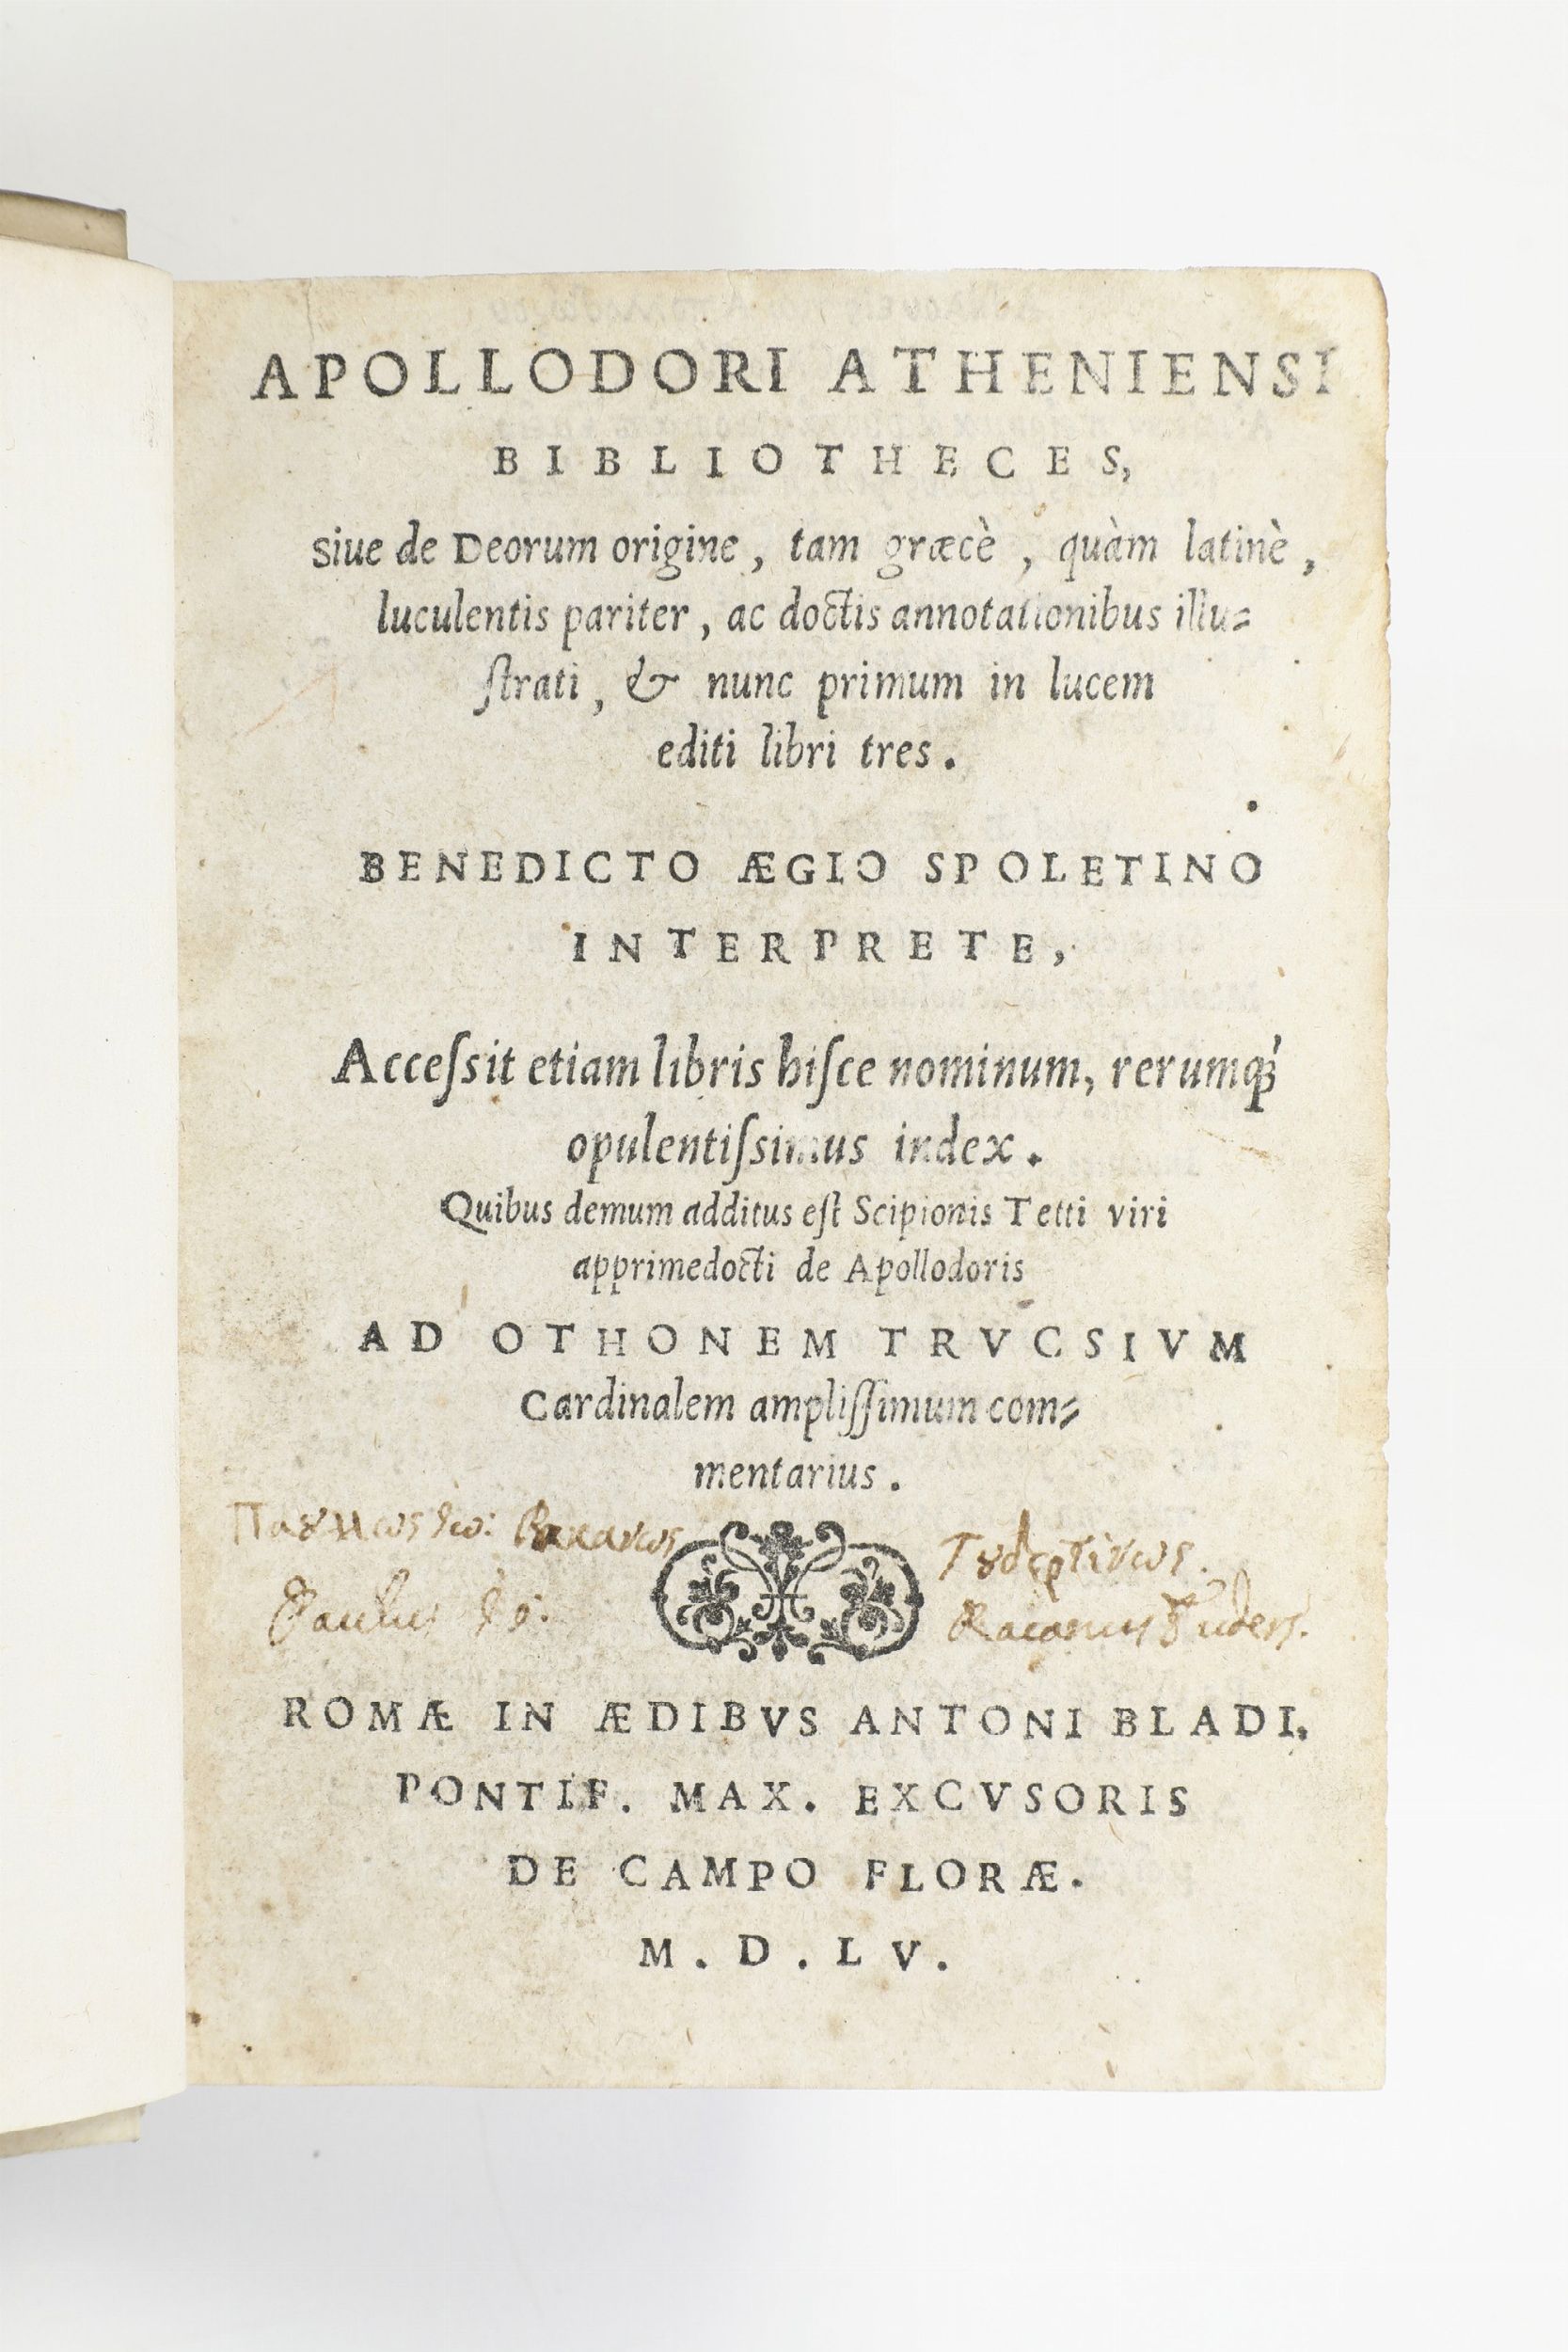 APOLLODORI ATHENIENSI
BIBLIOTHECES,
siue de Deorum origine, tam græcè, quàm latinè,
luculentis pariter, ac doctis annotationibus illu⸗
ſtrati, & nunc primum in lucem
editi libri tres.
BENEDICTO ÆGIO SPOLETINO
INTERPRETE,
Acceſsit etiam libris hiſce nominum, rerumq́;
opulentiſsimus index.
Quibus demum additus eſt Scipionis Tetti viri
apprimedocti de Apollodoris
AD OTHONEM TRVCSIVM
Cardinalem ampliſſimum com⸗
mentarius.
Τȣδερτίνως.
Paulus Racanus Tuders.
ROMÆ IN ÆDIBVS ANTONI BLADI,
PONTIF. MAX. EXCVSORIS
DE CAMPO FLORÆ.
M. D. LV.